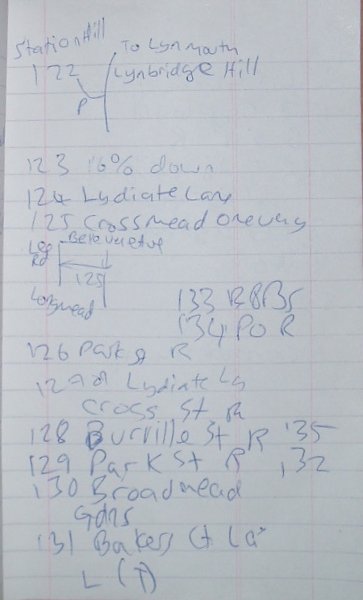 Station Hill
122
To Lynmouth
Lynbridge Hill
P
123 16% down
124 Lydiate Lane
125 Crossmead one way
Belevue Ave
Lee
Rd
125
Longmead
133 B&Bs
134 PO R
126 Park St R
127 Lydiate La
Cross St R
128 Burville St R 135
129 Park St R 132
130 Broadmead
Gdns
131 Bakers Ct La
L (T)